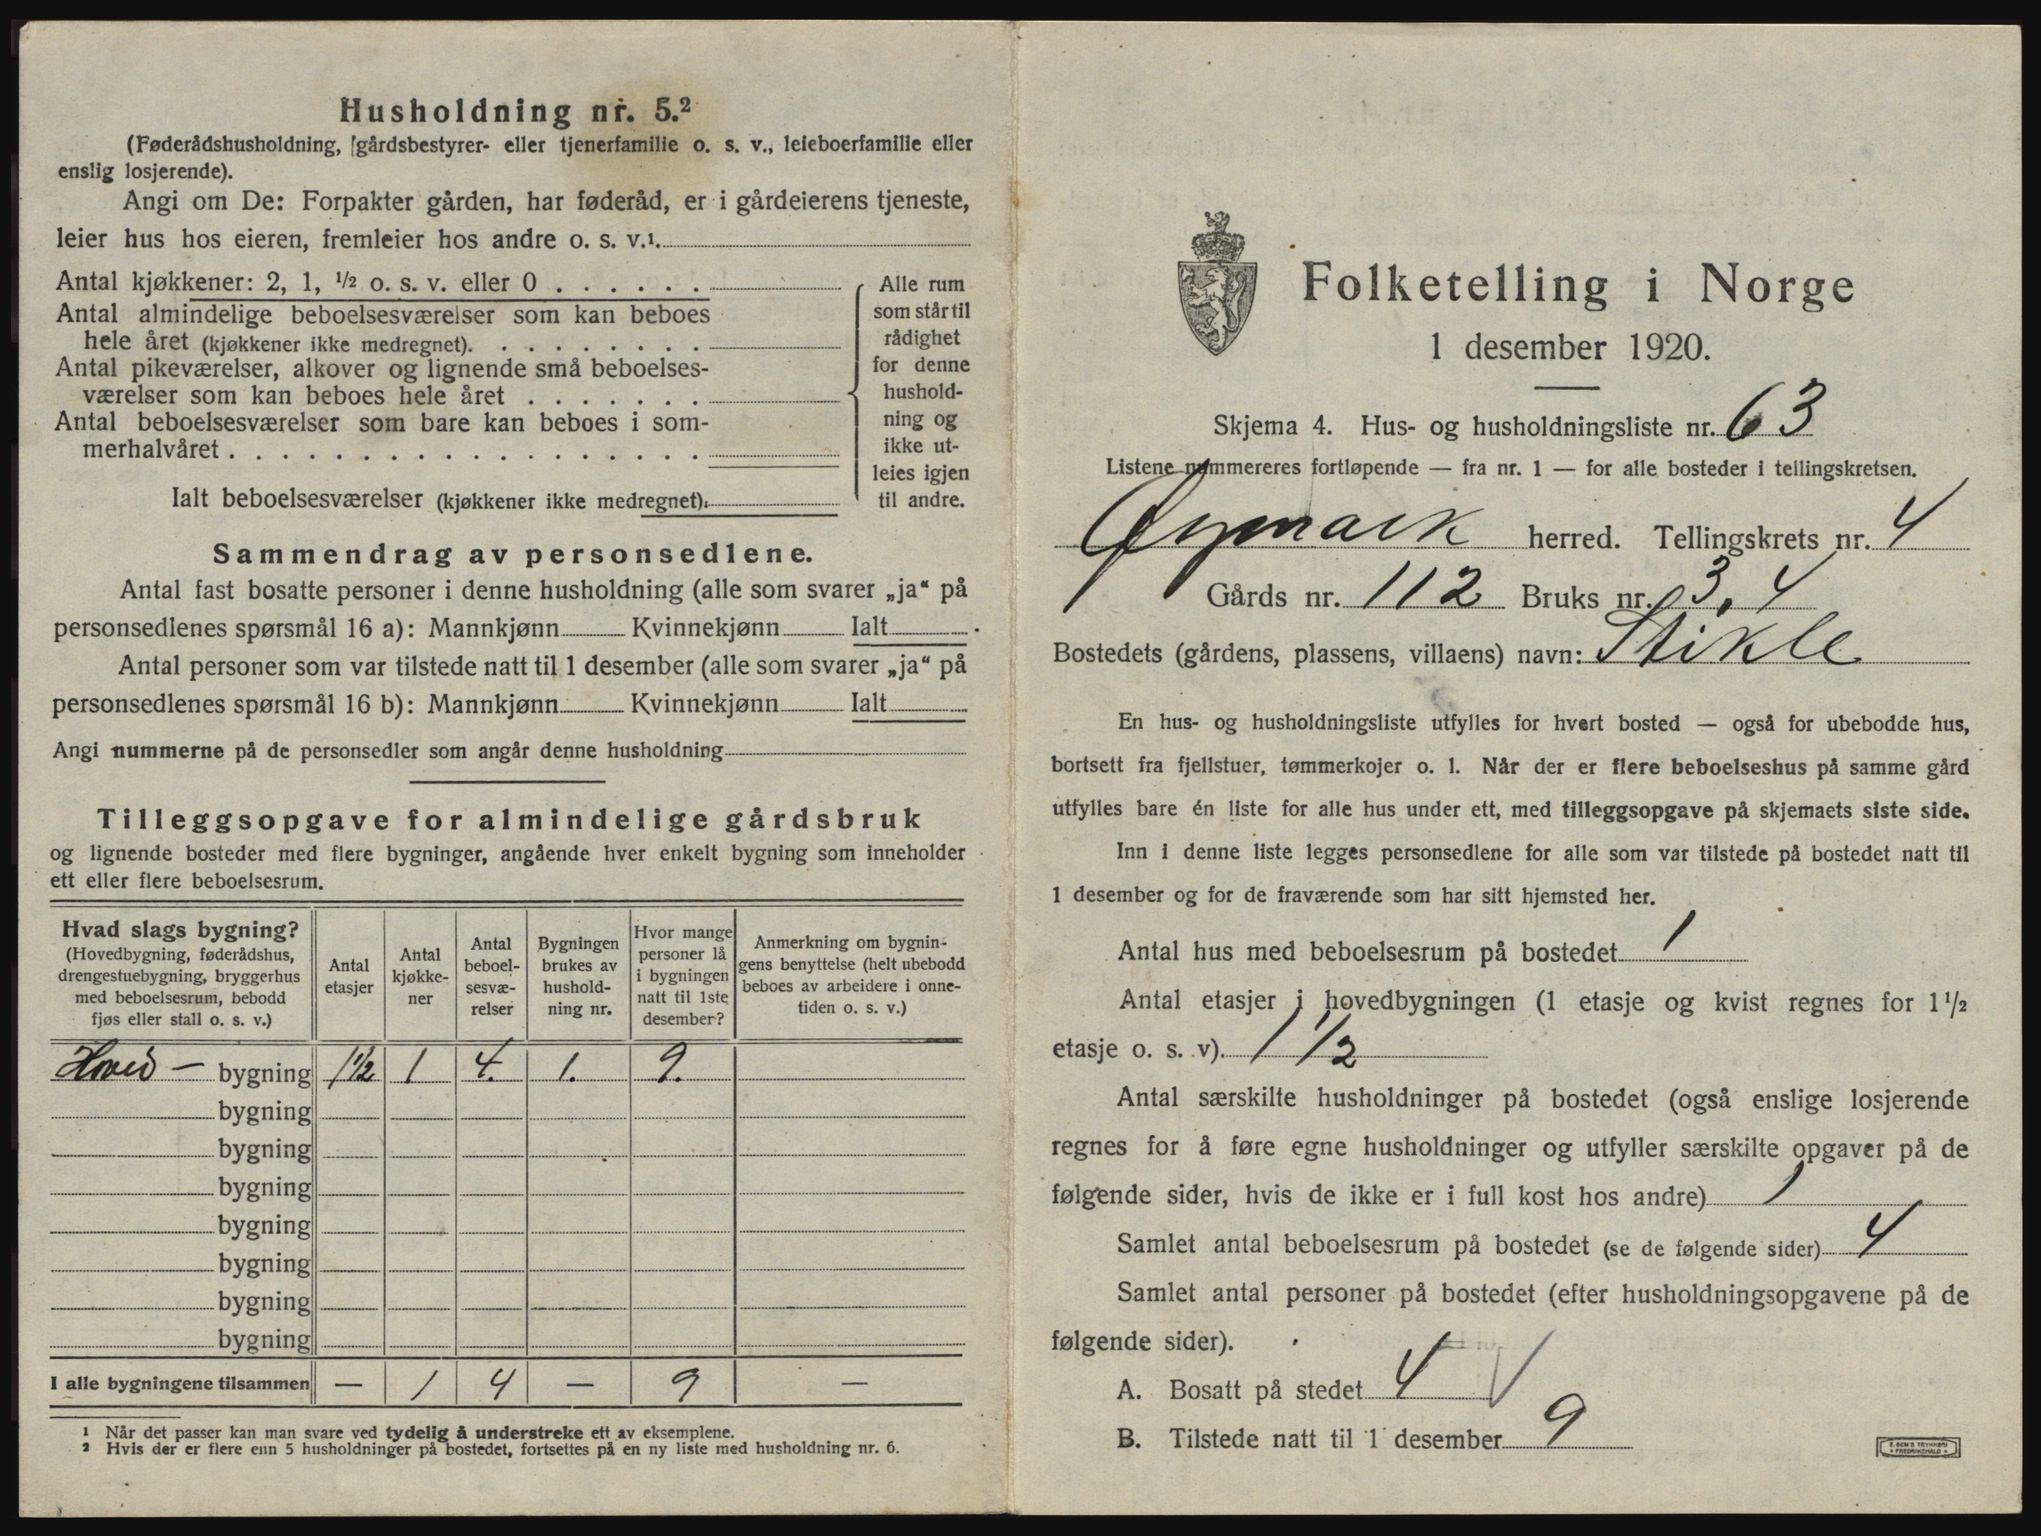 Husholdning nr. 5.²
(Føderådshusholdning, gårdsbestyrer- eller tjenerfamilie o. s. v., leieboerfamilie eller
enslig losjerende).
Angi om De: Forpakter gården, har føderåd, er i gårdeierens tjeneste,
leier hus hos eieren, fremleier hos andre o. s. v.¹.
Antal kjøkkener: 2, 1, ½ o. s. v. eller 0 . . . . . .
Antal almindelige beboelsesværelser som kan beboes
hele året (kjøkkener ikke medregnet). . . . . . . . .
Antal pikeværelser, alkover og lignende små beboelses-
værelser som kan beboes hele året . . . . . . .
Antal beboelsesværelser som bare kan beboes i som-
merhalvåret . . . . . . . . . . . . . . . . . .
Ialt beboelsesværelser (kjøkkener ikke medregnet).
Alle rum
som står til
rådighet
for denne
hushold-
ning og
ikke ut-
leies igjen
til andre.
Sammendrag av personsedlene.
Antal fast bosatte personer i denne husholdning (alle som svarer „ja“ på
personsedlenes spørsmål 16 a): Mannkjønn Kvinnekjønn Ialt
Antal personer som var tilstede natt til 1 desember (alle som svarer „ja“ på
personsedlenes spørsmål 16 b): Mannkjønn Kvinnekjønn Ialt
Angi nummerne på de personsedler som angår denne husholdning
Tilleggsopgave for almindelige gårdsbruk
og lignende bosteder med flere bygninger, angående hver enkelt bygning som inneholder
ett eller flere beboelsesrum.
Hvad slags bygning?
(Hovedbygning, føderådshus,
drengestuebygning, bryggerhus
med beboelsesrum, bebodd
fjøs eller stall o. s. v.)
Antal
etasjer
Antal
kjøkke-
ner
Antal
beboel-
sesvæ-
relser
Bygningen
brukes av
hushold-
ning nr.
Hvor mange
personer lå
i bygningen
natt til 1ste
desember?
Anmerkning om bygnin-
gens benyttelse (helt ubebodd
beboes av arbeidere i onne-
tiden o. s. v.)
Hoved - bygning 1½ 1 4. 1. 9.
bygning
bygning
bygning
bygning
bygning
bygning
bygning
I alle bygningene tilsammen — 1 4 — 9 —
¹ Når det passer kan man svare ved tydelig å understreke ett av eksemplene.
² Hvis der er flere enn 5 husholdninger på bostedet, fortsettes på en ny liste med husholdning nr. 6.
Folketelling i Norge
1 desember 1920.
Skjema 4. Hus- og husholdningsliste nr. 63
Listene nummereres fortløpende — fra nr. 1 — for alle bosteder i tellingskretsen.
Øymark herred. Tellingskrets nr. 4
Gårds nr. 112 Bruks nr. 3, 4
Bostedets (gårdens, plassens, villaens) navn: Stikle
En hus- og husholdningsliste utfylles for hvert bosted — også for ubebodde hus,
bortsett fra fjellstuer, tømmerkojer o. l. Når der er flere beboelseshus på samme gård
utfylles bare én liste for alle hus under ett, med tilleggsopgave på skjemaets siste side.
Inn i denne liste legges personsedlene for alle som var tilstede på bostedet natt til
1 desember og for de fraværende som har sitt hjemsted her.
Antal hus med beboelsesrum på bostedet 1
Antal etasjer i hovedbygningen (1 etasje og kvist regnes for 1½
etasje o. s. v). 1 1/2
Antal særskilte husholdninger på bostedet (også enslige losjerende
regnes for å føre egne husholdninger og utfyller særskilte opgaver på de
følgende sider, hvis de ikke er i full kost hos andre) 1
Samlet antal beboelsesrum på bostedet (se de følgende sider) 4
Samlet antal personer på bostedet (efter husholdningsopgavene på de
følgende sider).
A. Bosatt på stedet 4 √
B. Tilstede natt til 1 desember 9